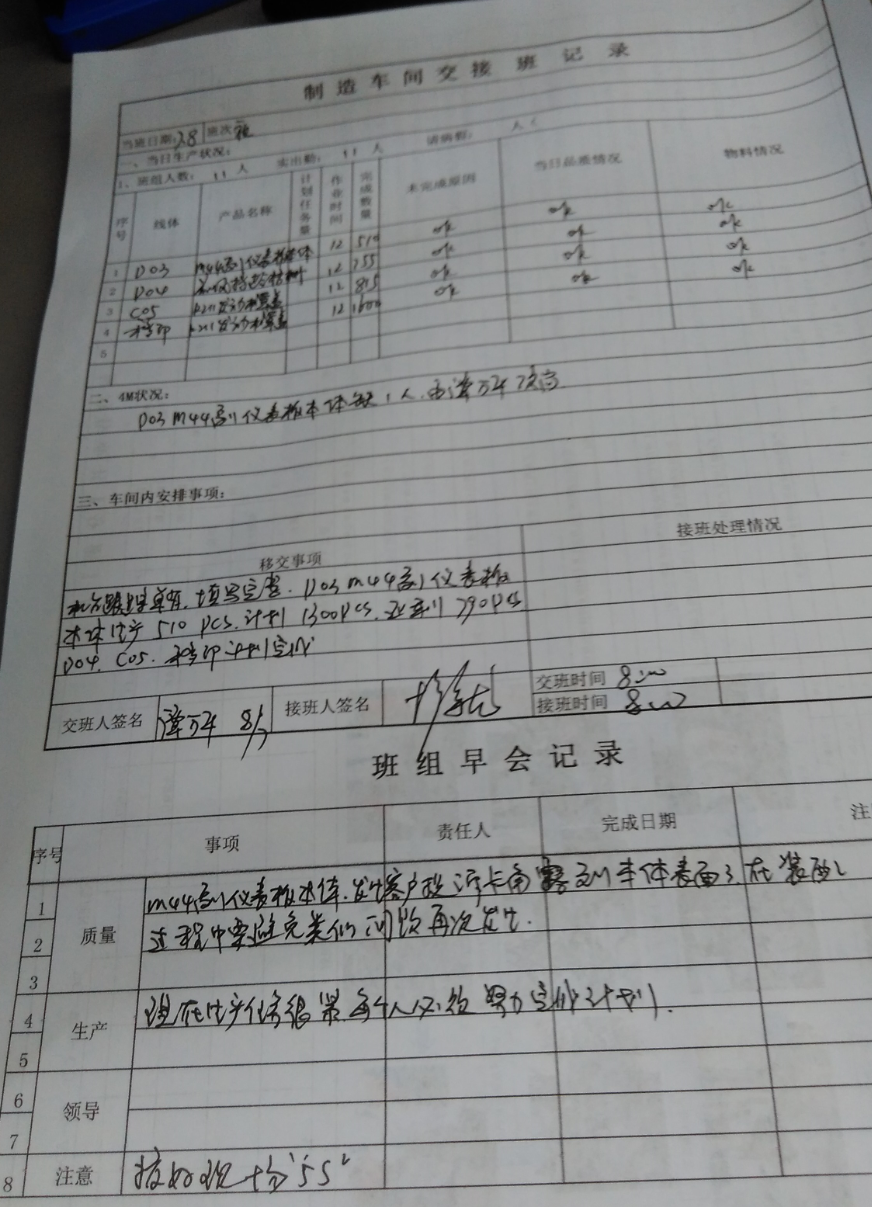 制造车间交接班记录
当班日期: 28 班次 夜
一、当日生产状况:
1、班组人数: 11 人 实出勤: 11 人 请病假: 人
序号 线体 产品名称 计划任务量 作业时间 完成数量 未完成原因 当日品质情况 物料情况
1 D03 M44副仪表板本体 12 510 ok ok ok
2 D04 12 755 ok ok ok
3 C05 12 815 ok ok ok
4 移印 12 1600 ok ok ok
5
二、4M状况:
D03 M44副仪表板本体缺1人,由谭万年顶岗
三、车间内安排事项:
移交事项 接班处理情况
填写完整. D03 M44副仪表板
本体生产510 PCS.计划1300PCS.还差790PCS
D04. C05. 移印计划完成
交班人签名 谭万年 8/7 接班人签名 交班时间 8:00
接班时间 8:00
班组早会记录
序号 事项 责任人 完成日期 注
1 质量 M44副仪表板本体.发生客户投诉卡角露到本体表面了.在装配
2 过程中要避免类似问题再次发生.
3
4 生产 现在生产任务很紧每个人必须努力完成计划.
5
6 领导
7
8 注意 搞好现场“5S”